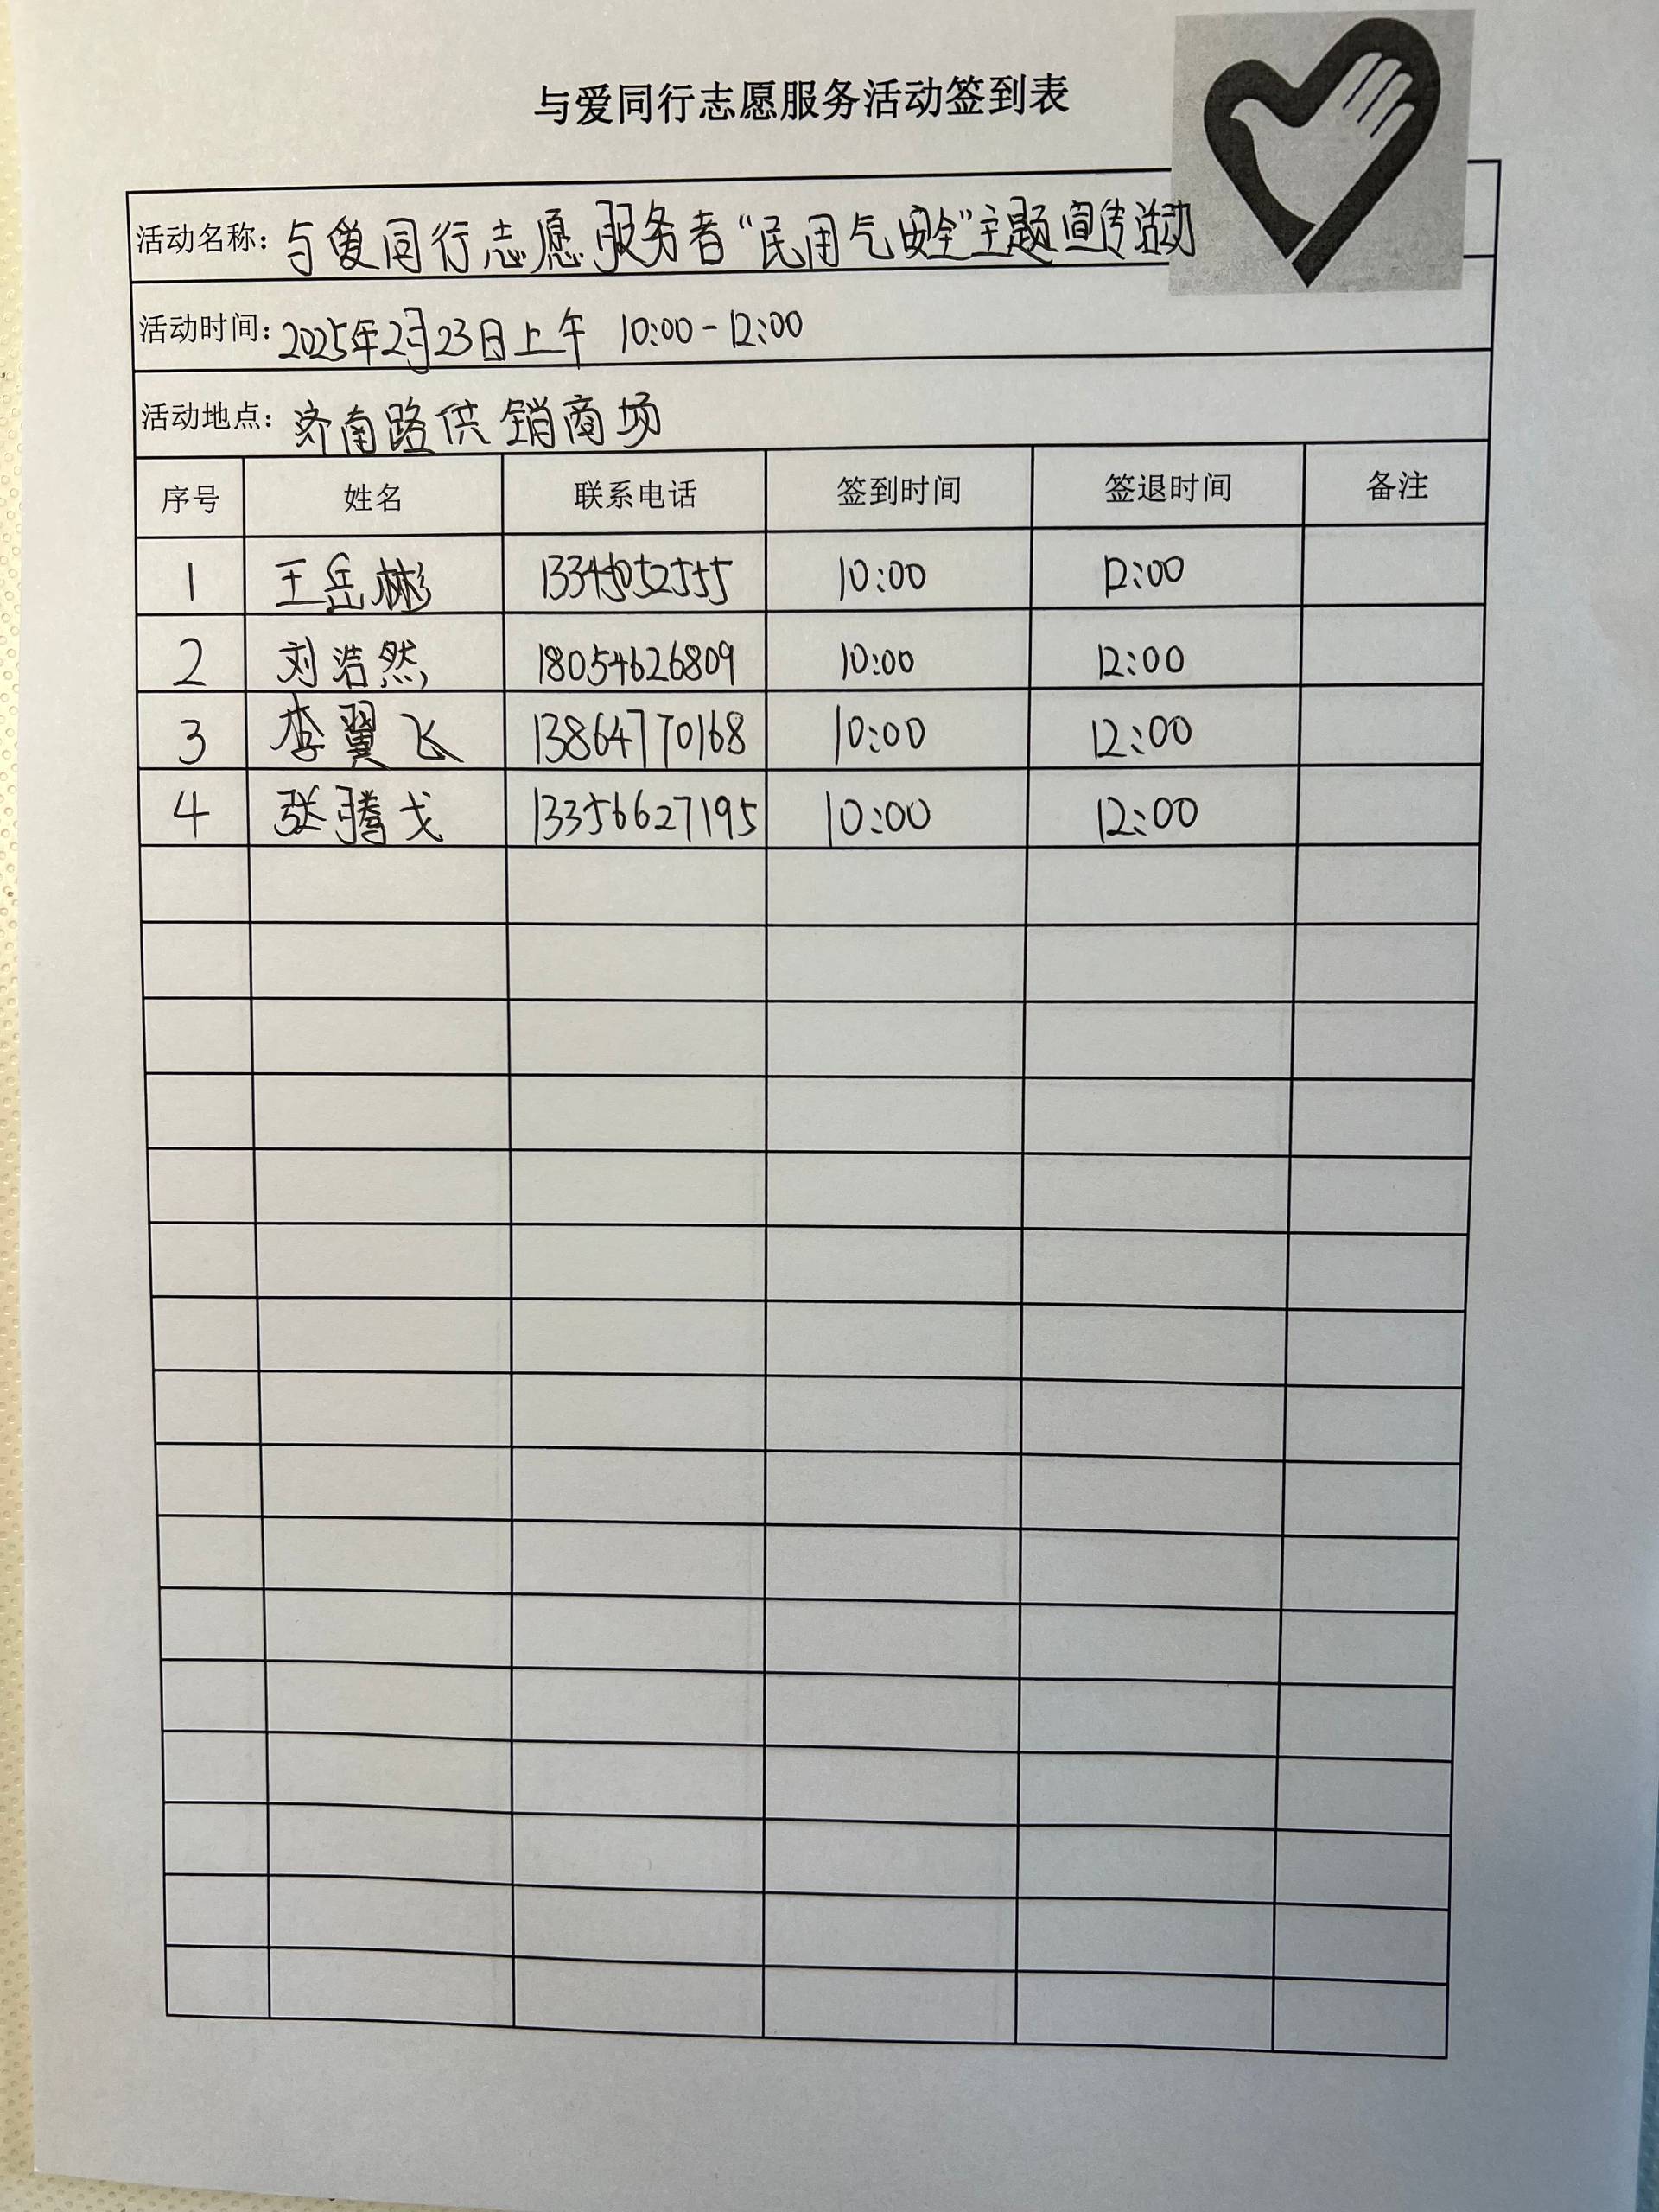 与爱同行志愿服务活动签到表
活动名称：与爱同行志愿服务者“民用气安全”主题宣传活动
活动时间：2025年2月23日上午 10:00-12:00
活动地点：济南路供销商场
序号 姓名 联系电话 签到时间 签退时间 备注
1 王岳彬 10:00 12:00
2 刘浩然 18054626809 10:00 12:00
3 李翼飞 13864770168 10:00 12:00
4 张腾戈 13356627195 10:00 12:00